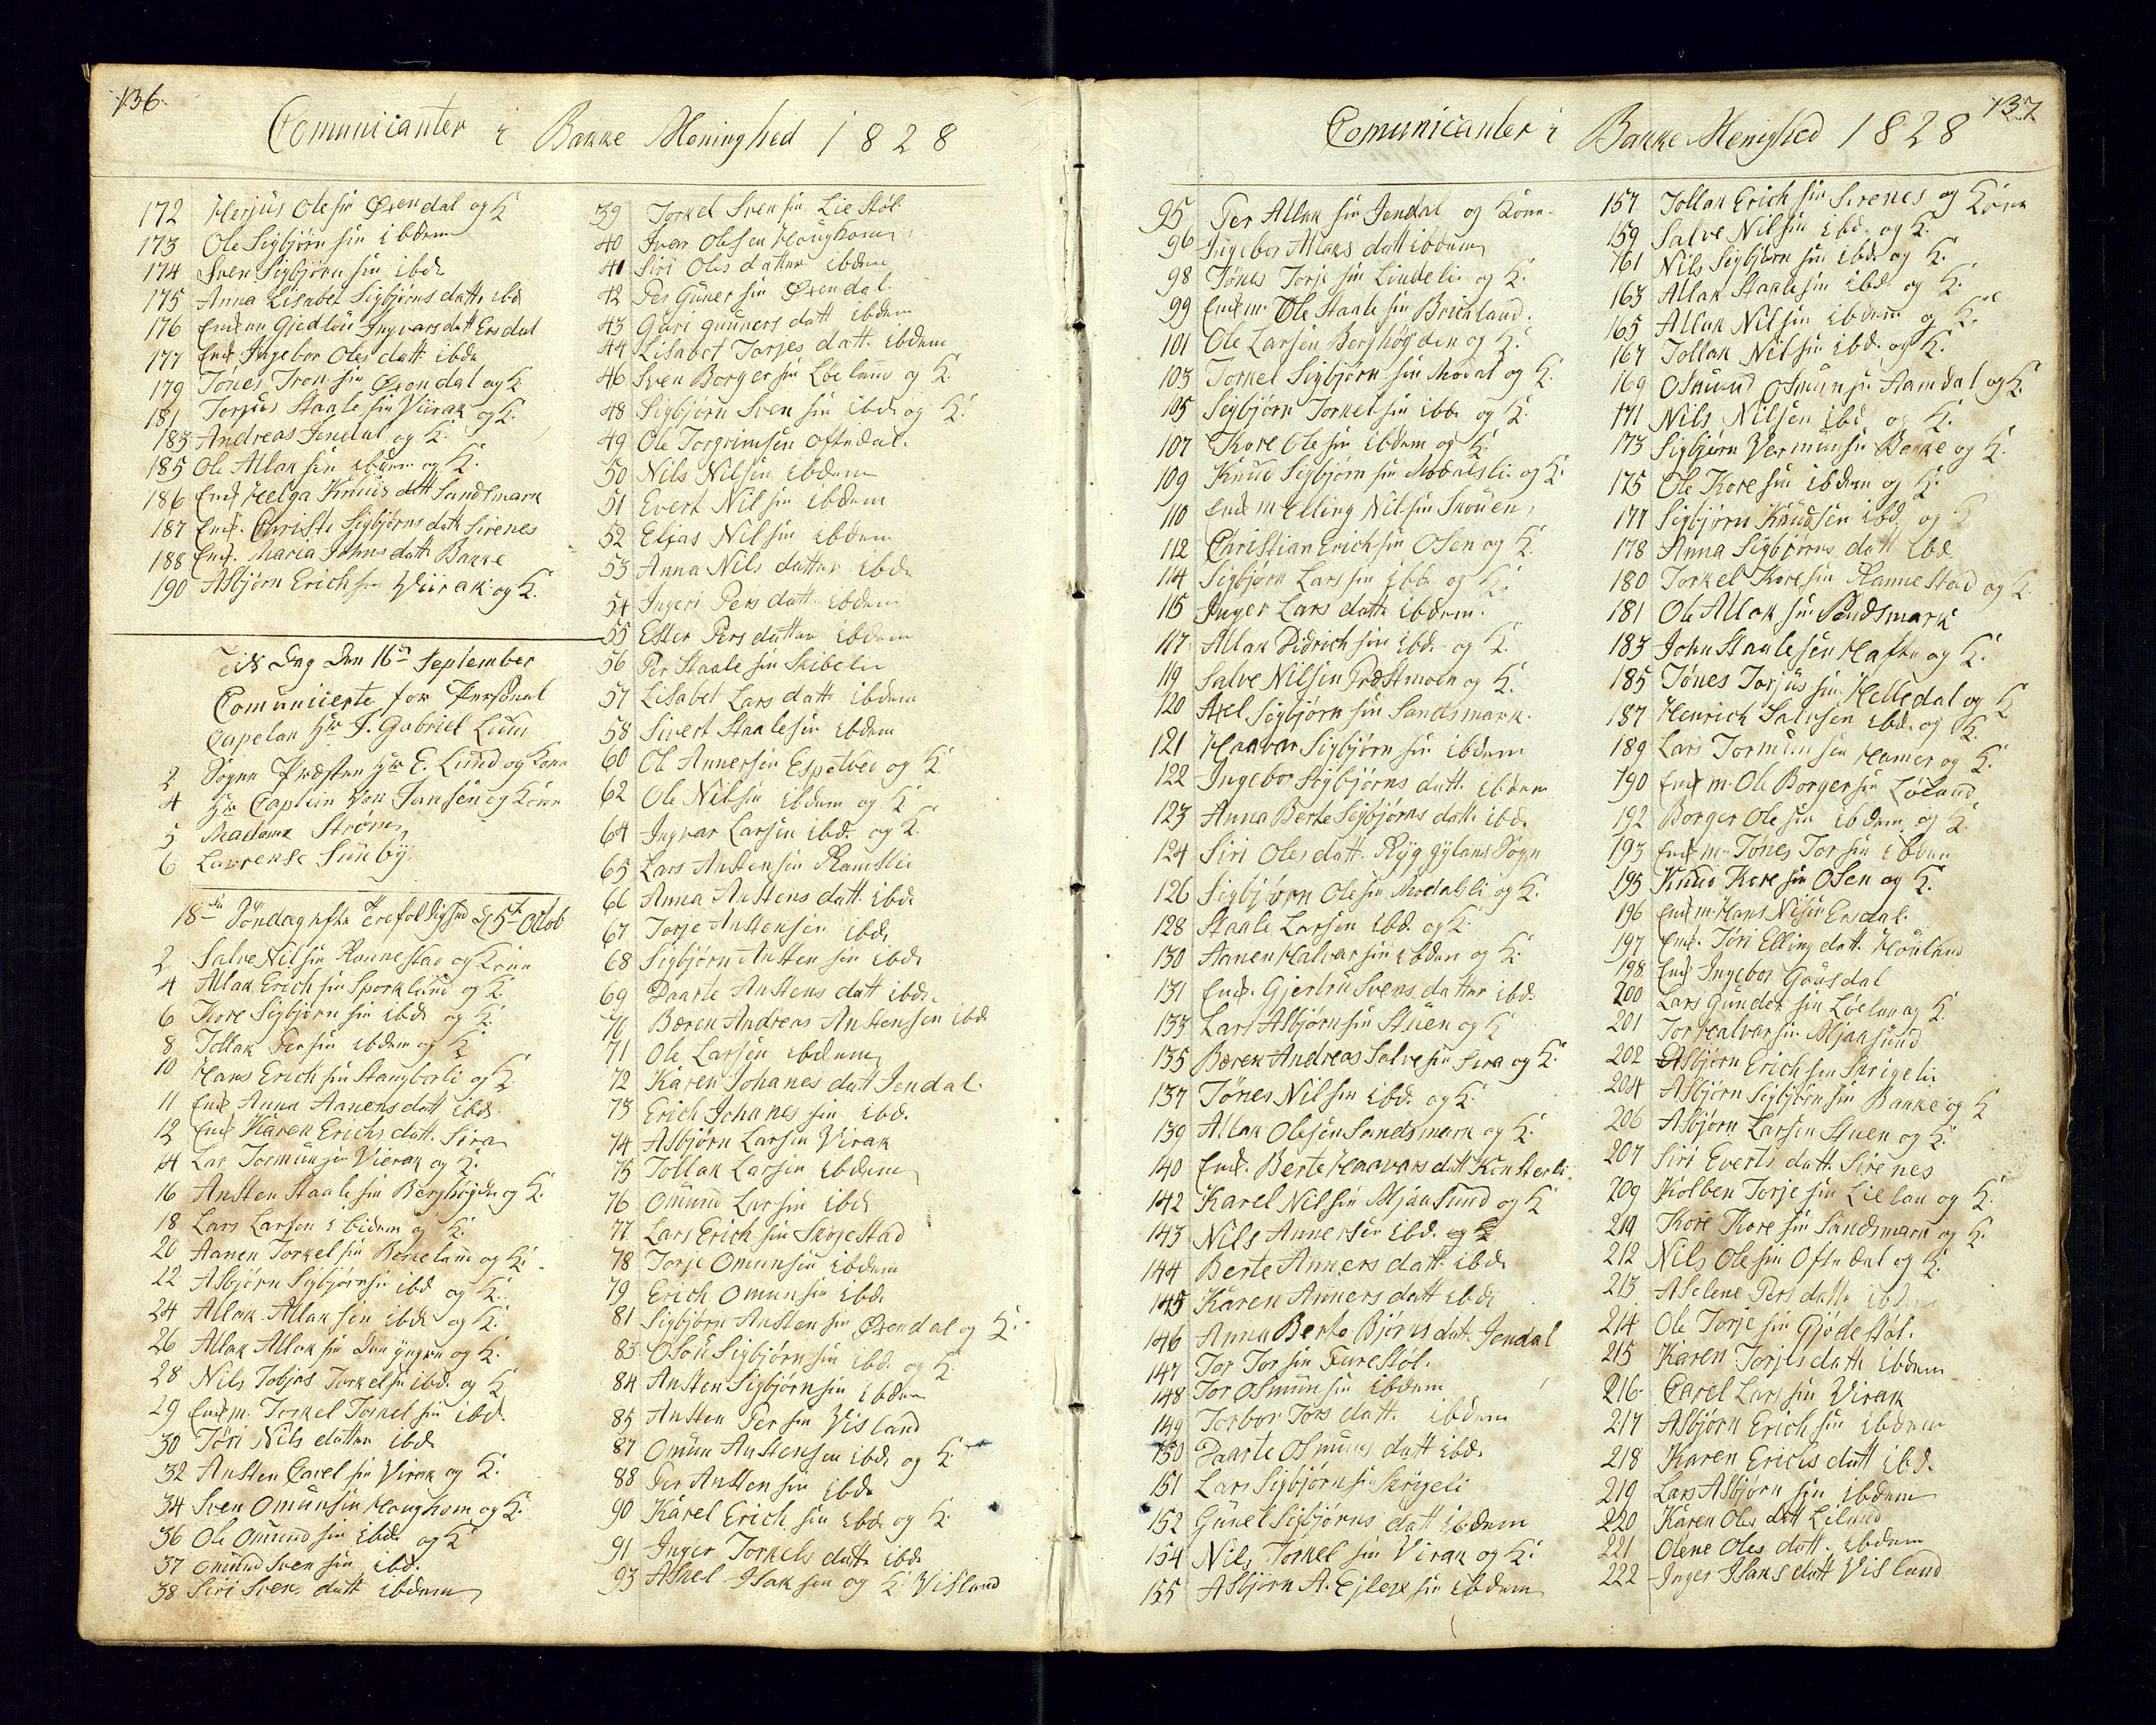 136.
Comunicanter i Bakke Meninghed 1828
172 Herjus Olesen Øxendal og K
173 Ole Sigbjørnsen ibdem
174 Sven Sigbjørnsen ibd.
175 Anna Lisabet Sigbjørnsdatt. ibd
176 Gjedlöu Ingvarsdatt Ersdal
177 Enk Ingebor Olesdatt. ibde
179 Tønes Tronsen Øxendal og K
181 Torjus Staalesen Viirak og K.
183 Andreas Jendal og K.
185 Ole Atlaksen ibdem og K.
186 Enk Helga Knuds datt Sandsmark
187 Enk. Christi Sigbjørns datt Sirenes
188 Enk. Maria Johnsdatt Bakke
190 Asbjørn Erichsen Viirak og K.
Dag Den 16de September
Comunicerte for Personel
Capelan Hr J. Gabriel Lund
2 Sogne Præsten Hr E. Lund og Kone
4 Hr Captein Von Jansen og Kone
5 Madame Strøm
6 Lavrense Sünby
18de Söndag efter Trefoldighed D 5te Octob
2 Salve Nilsen Rannestad og Kone
4 Atlak Erichsen Sporkland og K
6 Kore Sigbjørnsen ibd. og K.
8 Tollak Persen ibdem og K
10 Hans Erichsen Stangborli og K
11 Enk Anna Aanensdatt ibd.
12 Enk Karen Erichsdatt. Sira
14 Lar Tormunsen Vierak og K.
16 Ansten Staalesen Berghøgde og K.
18 Lars Larsen ibidem og K.
20 Aanen Torkelsen Birkeland og K.
22 Asbjørn Sigbjørnsen ibd og K.
24 Atlak Atlaksen ibd. og K.
26 Atlak Atlaksen og K.
28 Nils Tobjas Torkelsen ibd. og K
29 Enkm. Torkel Torkelsen ibd.
30 Töri Nilsdatter ibd.
32 Ansten Carelsen Virak og K.
34 Sven Omunsen Houghom og K.
36 Ole Omundsen ibd. og K
37 Omund Svensen ibd.
38 Siri Svens datt ibdem
39 Torkel Svensen Lie Støl.
40 Iver Olesen Houghom
41 Siri Olesdatter ibdem
42 Per Günersen Øxendal.
43 Guri gunnersdatt ibdem
44 Lisabet Torjesdatt. ibdem
46 Sven Borgersen Löeland og K.
48 Sigbjørn Svensen ibd. og K.
49 Ole Torgrimsen oftedal.
50 Nils Nilsen ibdem
51 Evert Nilsen ibdem
52 Eljas Nilsen ibdem
53 Anna Nilsdatter ibd.
54 Ingeri Persdatt. ibdem
55 Ester Persdatter ibdem
56 Per Staalesen Skibelie
57 Lisabet Larsdatt. ibdem
58 Sivert Staalesen ibdem
60 Ole Annersen Espetved og K.
62 Ole Nilsen ibdem og K
64 Ingvar Larsen ibd. og K.
65 Lars Anstensen Ramslie
66 Anna Anstensdatt. ibd.
67 Torje Anstensen ibd.
68 Sigbjørn Anstensen ibd.
69 Daarte Anstensdatt ibd.
70 Bæren Andreas Anstensen ibd
71 Ole Larsen ibdem
72 Karen Johanesdatt Jendal.
73 Erich Johanessen ibd.
74 Asbjørn Larsen Virak
75 Tollak Larsen ibdem
76 Omund Larsen ibd
77 Lars Erichsen Skojestad
78 Torje Omunsen ibdem
79 Erich Omunsen ibd.
81 Sigbjørn Anstensen Øxendal og K.
83 Osou Sigbjørnsen ibd. og K.
84 Ansten Sigbjørnsen ibdem
85 Ansten Persen Visland
87 Omün Anstensen ibd. og K.
88 Per Anstensen ibd.
90 Karel Erichsen ibd. og K.
91 Inger Torkelsdatt. ibd.
93 Askel Isaksen og K. Visland
137
Comunicanter i Bakke Menighed 1828
95 Per Atlaksen Jendal og Kone.
96 Ingebor Atlaksdatt ibdem
98 Tönes Torjesen Lindelie og K.
99 Enkm. Ole Staalesen Brichland.
101 Ole Larsen Berghögden og K.
103 Torkel Sigbjørnsen Modal og K.
105 Sigbjørn Torkelsen ibd. og K.
107 Kore Olesen ibdem og K.
109 Knud Sigbjørnsen Modalsli og K.
110 Enkm Elling Nilsen Skouen
112 Christian Erichsen Osen og K.
114 Sigbjørn Larssen ibd. og K.
115 Inger Larsdatt. ibdem.
117 Atlak Didrichsen ibd. og K.
119 Salve Nilsen Præstmoen og K.
120 Axel Sigbjørnsen Sandsmark.
121 Haavar Sigbjørnsen ibdem
122 Ingebor Sigbjørnsdatt. ibdem
123 Anna Berte Sigbjørnsdatt. ibd.
124 Siri Olesdatt. Ryggylans Sogn
126 Sigbjørn Olesen Modalsli og K.
128 Staale Larsen ibd. og K.
130 Aanen Halvarsen ibdem og K.
131 Enk. Gjertru Svensdatter ibd.
133 Lars Asbjørnsen Stuen og K
135 Bæren Andreas Salvesen Sira og K.
137 Tönes Nilsen ibd. og K.
139 Atlak Olesen Sandsmark og K.
140 Enk. Berte Haavarsdatt Konsterli.
142 Karel Nilsen Mjaasund og K
143 Nils Annersen ibd. og K
144 Berte Annersdatt. ibd.
145 Karen Annersdatt ibd.
146 Anna Berte Bjørnsdatt. Jendal
147 Tor Torsen Furestøl.
148 Tor Osmünsen ibdem
149 Torbor Torsdatt. ibdem
150 Daarte Osmunsdatt ibd.
151 Lars Sigbjørnsen Skrigeli
152 Günel Sigbjørnsdatt ibdem
154 Nils Torkelsen Virak og K.
155 Asbjörn A. Ejlersen ibdem
157 Tollak Erichsen Sirenes og Kone
159 Salve Nilsen ibd. og K.
161 Nils Sigbjørnsen ibd. og K.
163 Atlak Staalesen ibd. og K.
165 Atlak Nilsen ibdem og K.
167 Tollak Nilsen ibd. og K.
169 Osmund Osmunsen Aamdal og K.
171 Nils Nilsen ibd. og K.
173 Sigbjørn Vermunsen Bakke og K.
175 Ole Koresen ibdem og K.
177 Sigbjørn Knudsen ibd. og K
178 Anna Sigbjørnsdatt ibd
180 Torkel Koresen Rannestad og K.
181 Ole Atlaksen Sandsmark
183 John Staalesen Hafte og K.
185 Tönes Torjüssen Helledal og K
187 Henrich Salvesen ibd. og K.
189 Lars Tormunsen Hamer og K.
190 Enkm. Ole Borgersen Löland
192 Borger Olesen ibdem og K.
193 Enkm. Tönes Torsen ibdem
195 Knud Koresen Osen og K.
196 Enkm. Hans Nilsen Ersdal.
197 Enk. Töri Ellingdatt. Houland
198 Enk Ingebor Gousdal
200 Lars Gundersen Löeland og K
201 Tor Halvarsen Mjaasund
202 Asbjørn Erichsen Skrigeli
204 Asbjørn Sigbjørnsen Bakke og K
206 Asbjørn Larsen Stuen og K.
207 Siri Evertsdatt. Sirenes
209 Kolben Torjesen Lielan og K.
211 Kore Koresen Sandsmark og K.
212 Nils Olesen Oftedal og K.
213 Aselene Persdatt. ibdem
214 Ole Torjesen Gjödestöl.
215 Karen Torjesdatt. ibdem
216 Carel Larssen Virak
217 Asbjørn Erichsen ibdem
218 Karen Erichsdatt ibd.
219 Lars Asbjørnsen ibdem
220 Karen Olesdatt Lilund
221 Olene Olesdatt. ibdem
222 Inger Isaksdatt Visland